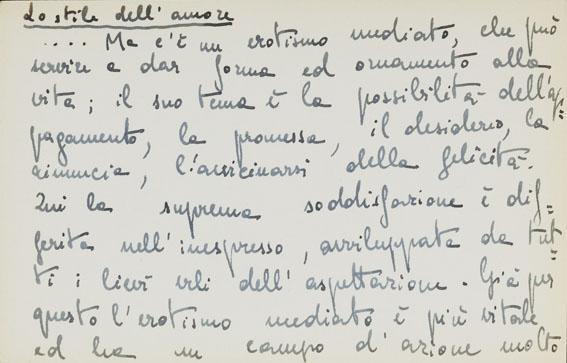 Lo stile dell'amore
.... Ma c'è un erotismo mediato, che può
servire a dar forma ed ornamento alla
vita; il suo tema è la possibilità dell'ap=
pagamento, la promessa, il desiderio, la
rinuncia, l'avvicinarsi della felicità.
Qui la suprema soddisfazione è dif=
ferita nell'inespresso, avviluppata da tut=
ti i lievi veli dell'aspettazione. Già per
questo l'erotismo mediato è più vitale
ed ha un campo d'azione molto